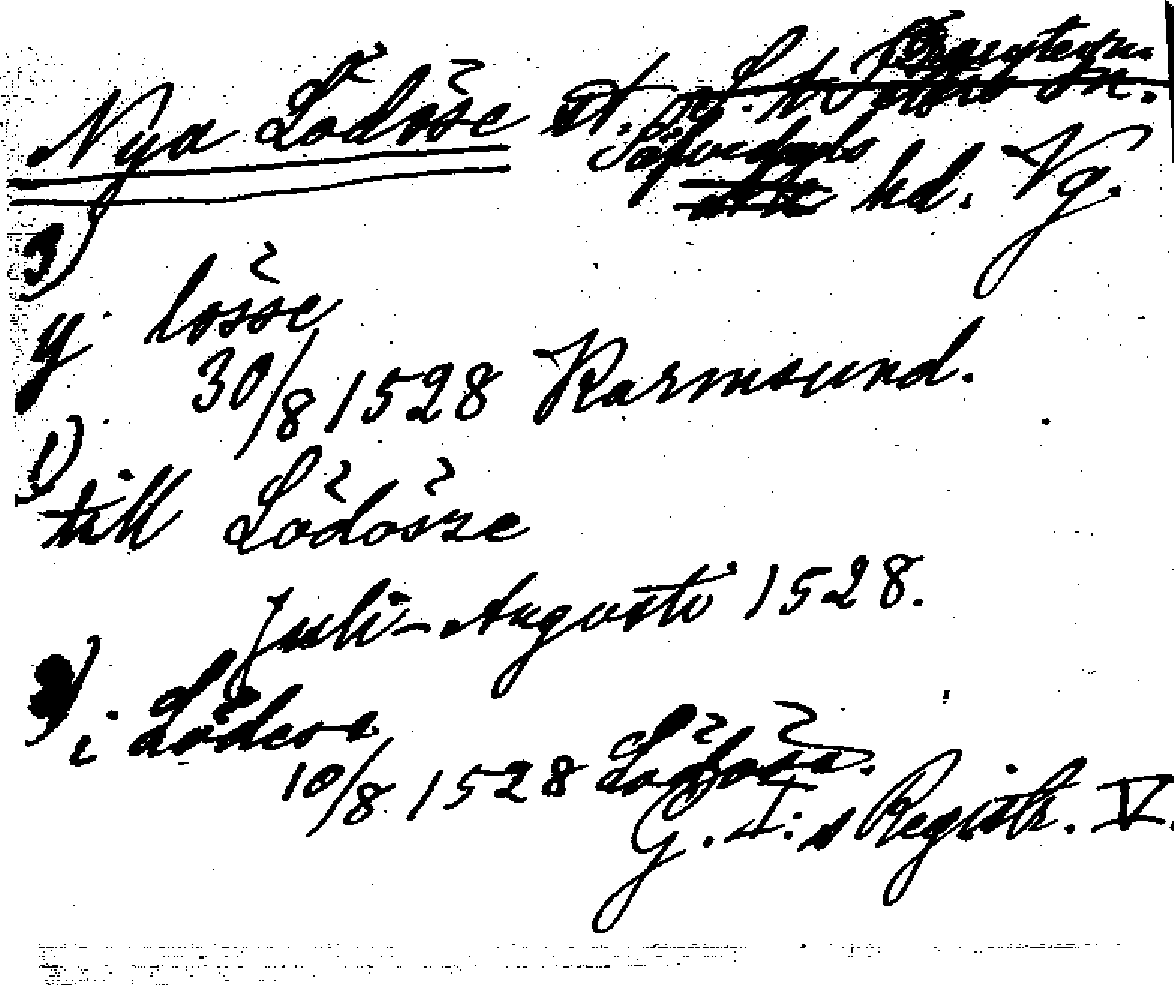 Nya Lödöse st.
Sävedals hd. Vg.
3)
y lösse
30/8 1528 Karmsund.
1)
till Lödösze
Juli-Augusti 1528.
2)
i Lödesa
10/8 1528 Lödösa.
G. I:s Registr. V.